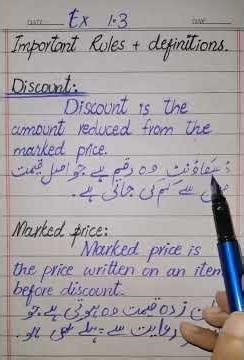 DATE: Ex 1.3 DATE:
Important Rules + definitions.
Discount:
Discount is the
amount reduced from the
marked price.
ڈسکاؤنٹ وہ رقم ہے جو اصل قیمت
میں سے کم کی جاتی ہے۔
Marked price:
Marked price is
the price written on an item
before discount.
زدہ قیمت وہ ہوتی ہے جو
رعایت سے پہلے لکھی ہو۔